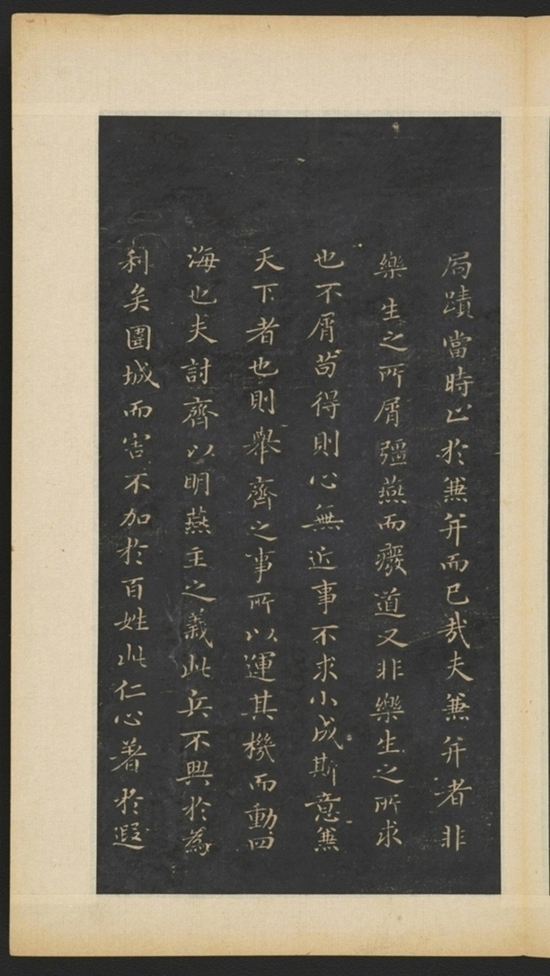 局蹟當時止於兼并而已哉夫兼并者非
樂生之所屑彊燕而癈道又非樂生之所求
也不屑苟得則心無近事不求小成斯意兼
天下者也則舉齊之事所以運其機而動四
海也夫討齊以明燕主之義此兵不興於為
利矣圍城而害不加於百姓此仁心著於遐